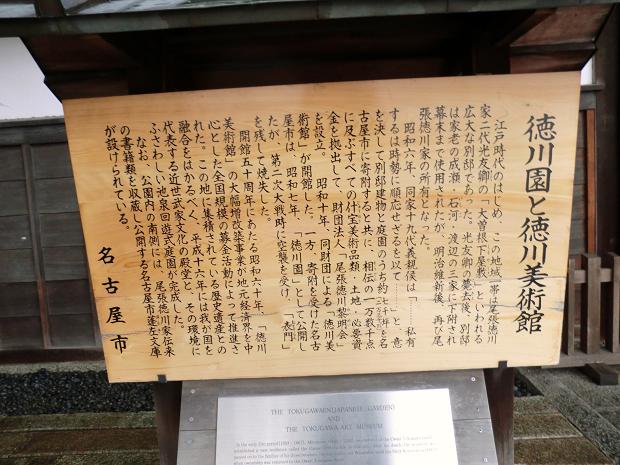 徳川園と徳川美術館
江戸時代のはじめ、この地域一帯は尾張徳川
家二代光友卿の「大曽根下屋敷」といわれる
広大な別邸であった。光友卿の薨去後、別邸
は家老の成瀬・石河・渡辺の三家に下附され
幕末まで使用されたが、明治維新後、再び尾
張徳川家の所有となった。
昭和六年、同家十九代義親侯は「……私有
するは時勢に順応せざるを以て……」と意
を決して別邸建物と庭園のうち約七千坪を名
古屋市に寄附すると共に、相伝の一万数千点
に及ぶすべての什宝美術品類、土地・必要資
金を拠出して、財団法人「尾張徳川黎明会」
を設立。昭和十年、同財団による「徳川美
術館」が開館した。一方、寄附を受けた名古
屋市は、昭和七年、「徳川園」として公開し
たが、第二次大戦時に空襲を受け、「表門」
を残して焼失した。
開館五十周年にあたる昭和六十年、「徳川
美術館」の大幅増改築事業が地元経済界を中
心とした全国規模の募金活動によって推進さ
れた。この地に集積されている歴史遺産との
融合をはかるべく、平成十六年には我が国を
代表する近世武家文化の殿堂と、その環境に
ふさわしい池泉回遊式庭園が完成した。
なお、公園内の南側には、尾張徳川家伝来
の書籍類を収蔵し公開する名古屋市蓬左文庫
が設けられている。
名古屋市
THE TOKUGAWAEN(JAPANESE GARDEN)
AND
THE TOKUGAWA ART MUSEUM